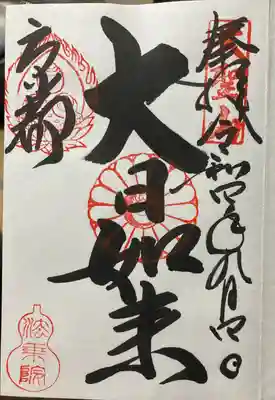 奉拝 令和四年九月四日
大日如来
京都